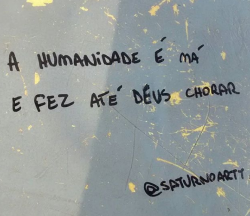 A HUMANIDADE É MÁ
E FEZ ATÉ DÉUS CHORAR
@SATURNOARTY